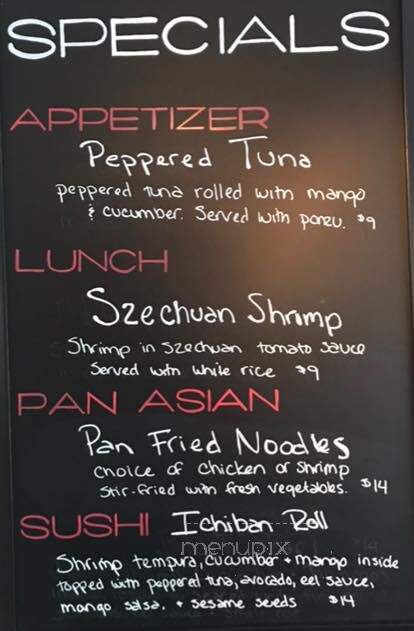 SPECIALS
APPETIZER
Peppered Tuna
peppered tuna rolled with mango
& cucumber. Served with ponzu. $9
LUNCH
Szechuan Shrimp
Shrimp in Szechuan tomato sauce
Served with white rice $9
PAN ASIAN
Pan Fried Noodles
choice of chicken or shrimp
Stir-fried with fresh vegetables. $14
SUSHI Ichiban Roll
menupix
Shrimp tempura, cucumber + mango inside
topped with peppered tuna, avocado, eel sauce,
mango salsa, + sesame seeds $14